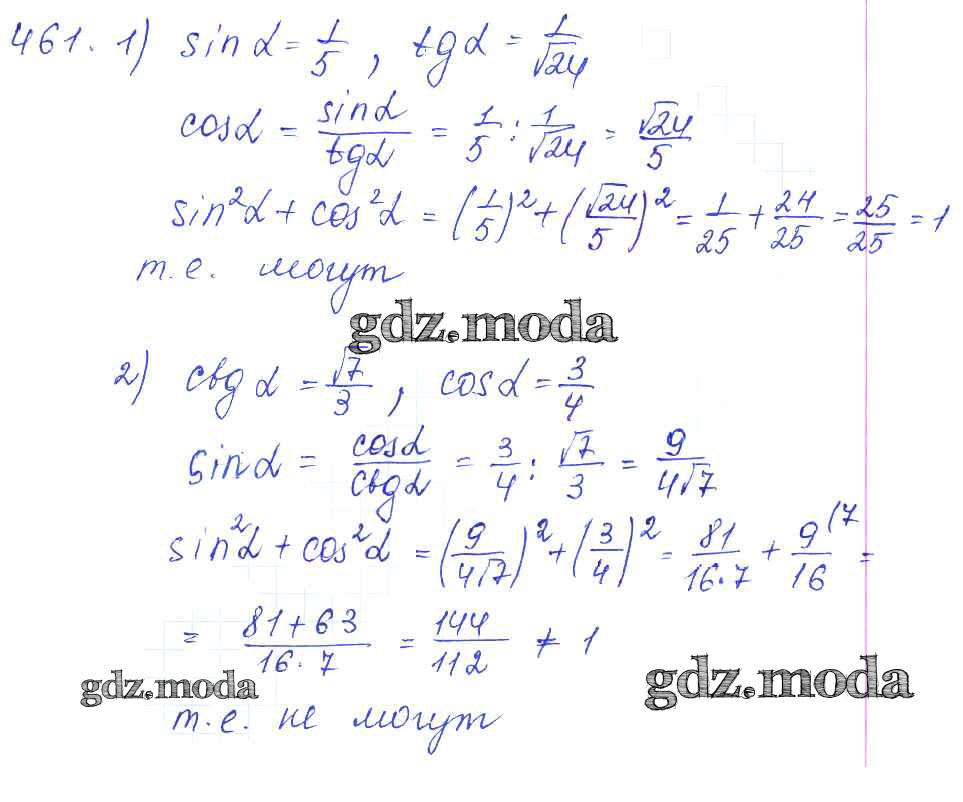 461. 1) sin α = 1/5, tg α = 1/√24
cos α = sin α / tg α = 1/5 : 1/√24 = √24/5
sin²α + cos²α = (1/5)² + (√24/5)² = 1/25 + 24/25 = 25/25 = 1
т.е. могут
gdz.moda
2) ctg α = √7/3, cos α = 3/4
sin α = cos α / ctg α = 3/4 : √7/3 = 9/4√7
sin²α + cos²α = (9/4√7)² + (3/4)² = 81/16·7 + 9/16 (7 =
= 81+63/16·7 = 144/112 ≠ 1
gdz.moda
gdz.moda
т.е. не могут